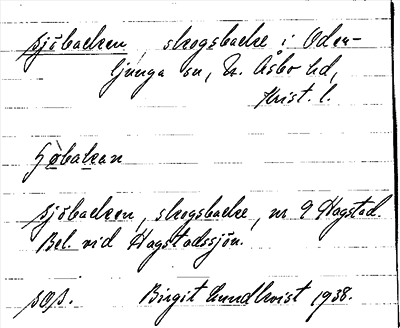 sjöbacken, skogsbacke i Oder-
ljunga sn, N. Åsbo hd,
Krist. l.
sjöbacken, skogsbacke, nr 9 Hagstad.
Bel. vid Hagstadssjön.
Birgit Lundkvist 1938.